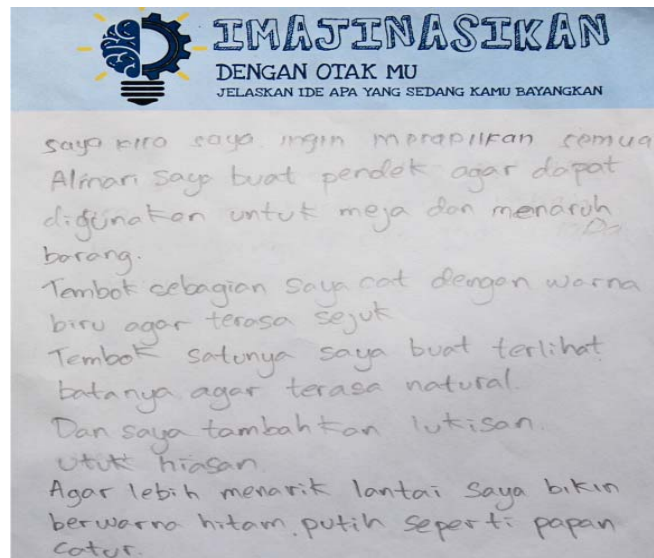 IMAJINASIKAN
DENGAN OTAK MU
JELASKAN IDE APA YANG SEDANG KAMU BAYANGKAN
saya kira saya ingin merapiikan semua
Almari saya buat pendek agar dapat
digunakan untuk meja dan menaruh
barang.
Tembok sebagian saya cat dengan warna
biru agar terasa sejuk
Tembok satunya saya buat terlihat
batanya agar terasa natural.
Dan saya tambahkan lukisan.
Utuk hiasan.
Agar lebih menarik lantai saya bikin
berwarna hitam putih seperti papan
catur.